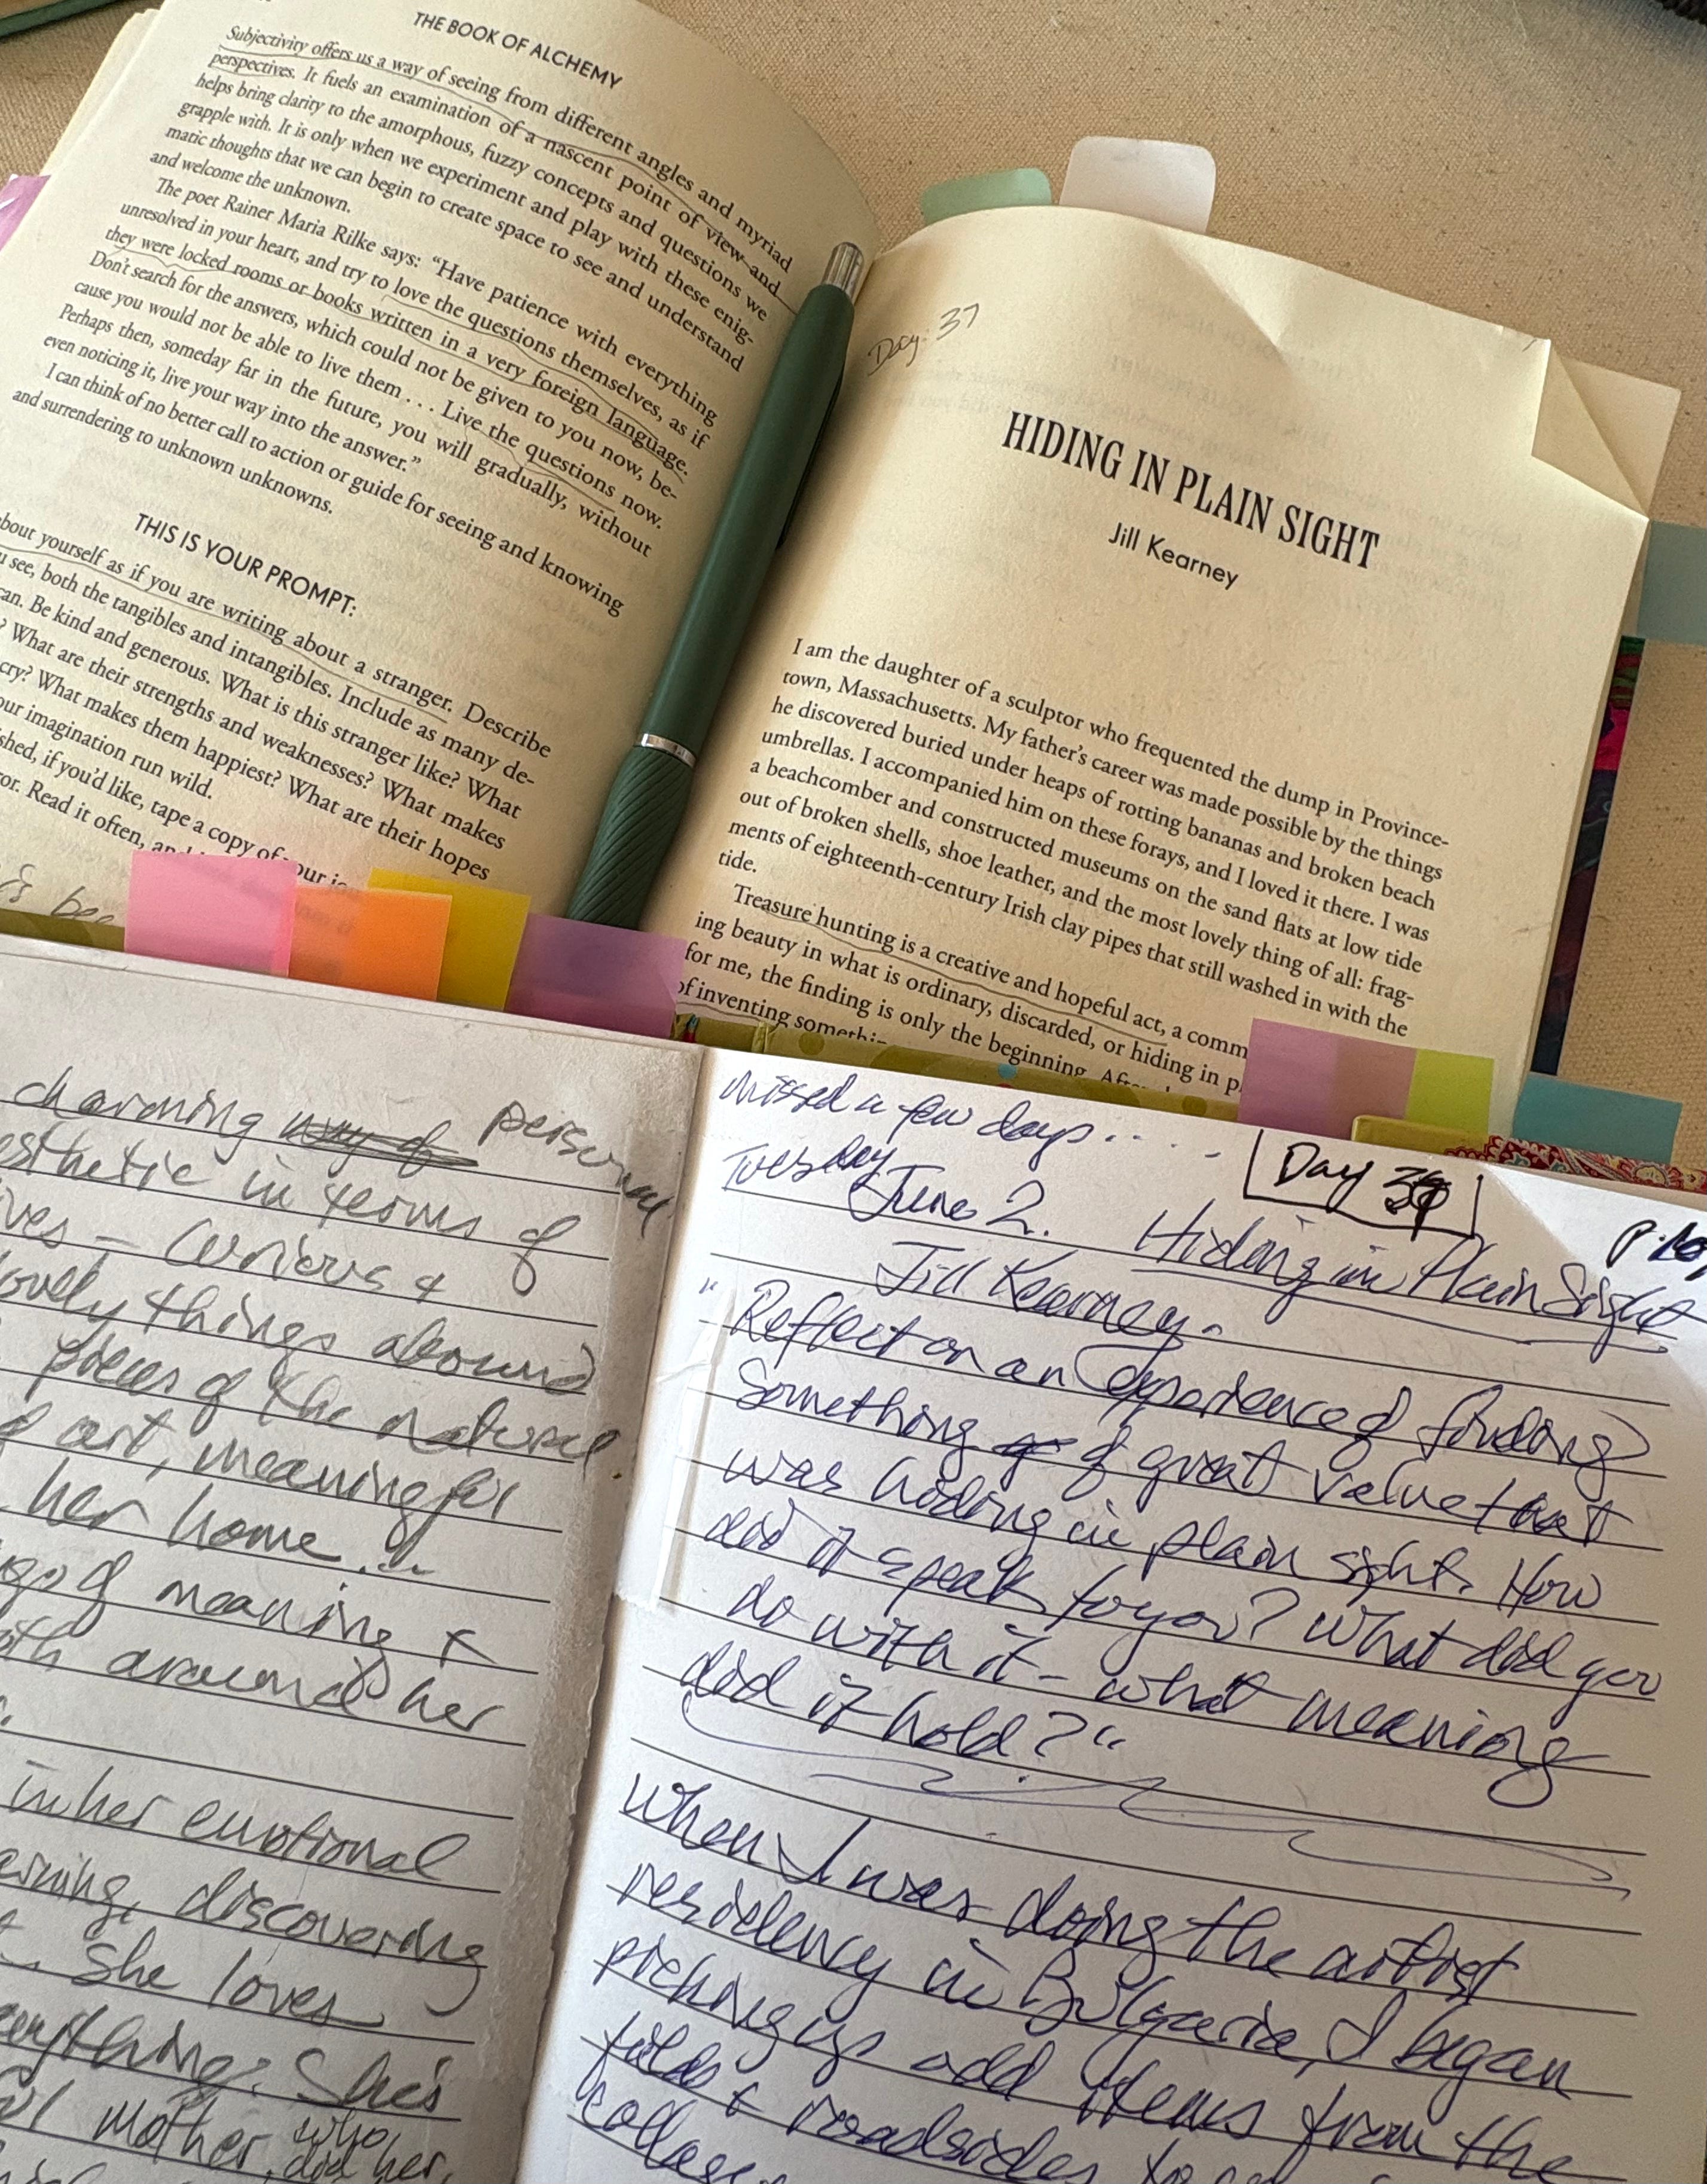 THE BOOK OF ALCHEMY
Subjectivity offers us a way of seeing from different angles and myriad
perspectives. It fuels an examination of a nascent point of view and
helps bring clarity to the amorphous, fuzzy concepts and questions we
grapple with. It is only when we experiment and play with these enig-
matic thoughts that we can begin to create space to see and understand
and welcome the unknown.
The poet Rainer Maria Rilke says: “Have patience with everything
unresolved in your heart, and try to love the questions themselves, as if
they were locked rooms or books written in a very foreign language.
Don’t search for the answers, which could not be given to you now, be-
cause you would not be able to live them . . . Live the questions now.
Perhaps then, someday far in the future, you will gradually, without
even noticing it, live your way into the answer.”
I can think of no better call to action or guide for seeing and knowing
and surrendering to unknown unknowns.
THIS IS YOUR PROMPT:
about yourself as if you are writing about a stranger. Describe
u see, both the tangibles and intangibles. Include as many de-
can. Be kind and generous. What is this stranger like? What
? What are their strengths and weaknesses? What makes
cry? What makes them happiest? What are their hopes
our imagination run wild.
shed, if you’d like, tape a copy of
or. Read it often,
Day: 37
HIDING IN PLAIN SIGHT
Jill Kearney
I am the daughter of a sculptor who frequented the dump in Province-
town, Massachusetts. My father’s career was made possible by the things
he discovered buried under heaps of rotting bananas and broken beach
umbrellas. I accompanied him on these forays, and I loved it there. I was
a beachcomber and constructed museums on the sand flats at low tide
out of broken shells, shoe leather, and the most lovely thing of all: frag-
ments of eighteenth-century Irish clay pipes that still washed in with the
tide.
Treasure hunting is a creative and hopeful act, a comm
ing beauty in what is ordinary, discarded, or hiding in p
for me, the finding is only the beginning.
of inventing somethi
charming personal
esthetic in terms of
ives – curious &
lovely things abound
pieces of the natural
of art, meaning for
her home...
of meaning &
around her
in her emotional
discovering
She loves
erything. She's
mother, who
did her,
missed a few days....
Tuesday
June 2.
Day 37
Hiding in Plain Sight
Jill Kearney.
"Reflect on an experience of finding
something of great value that
was hiding in plain sight. How
did it speak to you? What did you
do with it – what meaning
did it hold?"
When I was doing the artist
residency in Bulgaria, I began
picking up odd items from the
fields & roadsides to